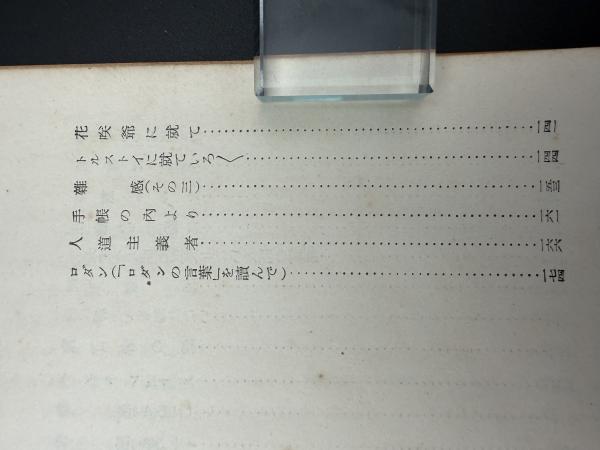 花咲爺に就て……一四一
トルストイに就ていろ〱……一四四
雜感(その三)……一五三
手帳の內より……一六一
人道主義者……一六六
ロダン(「ロダンの言葉」を讀んで)……一七四